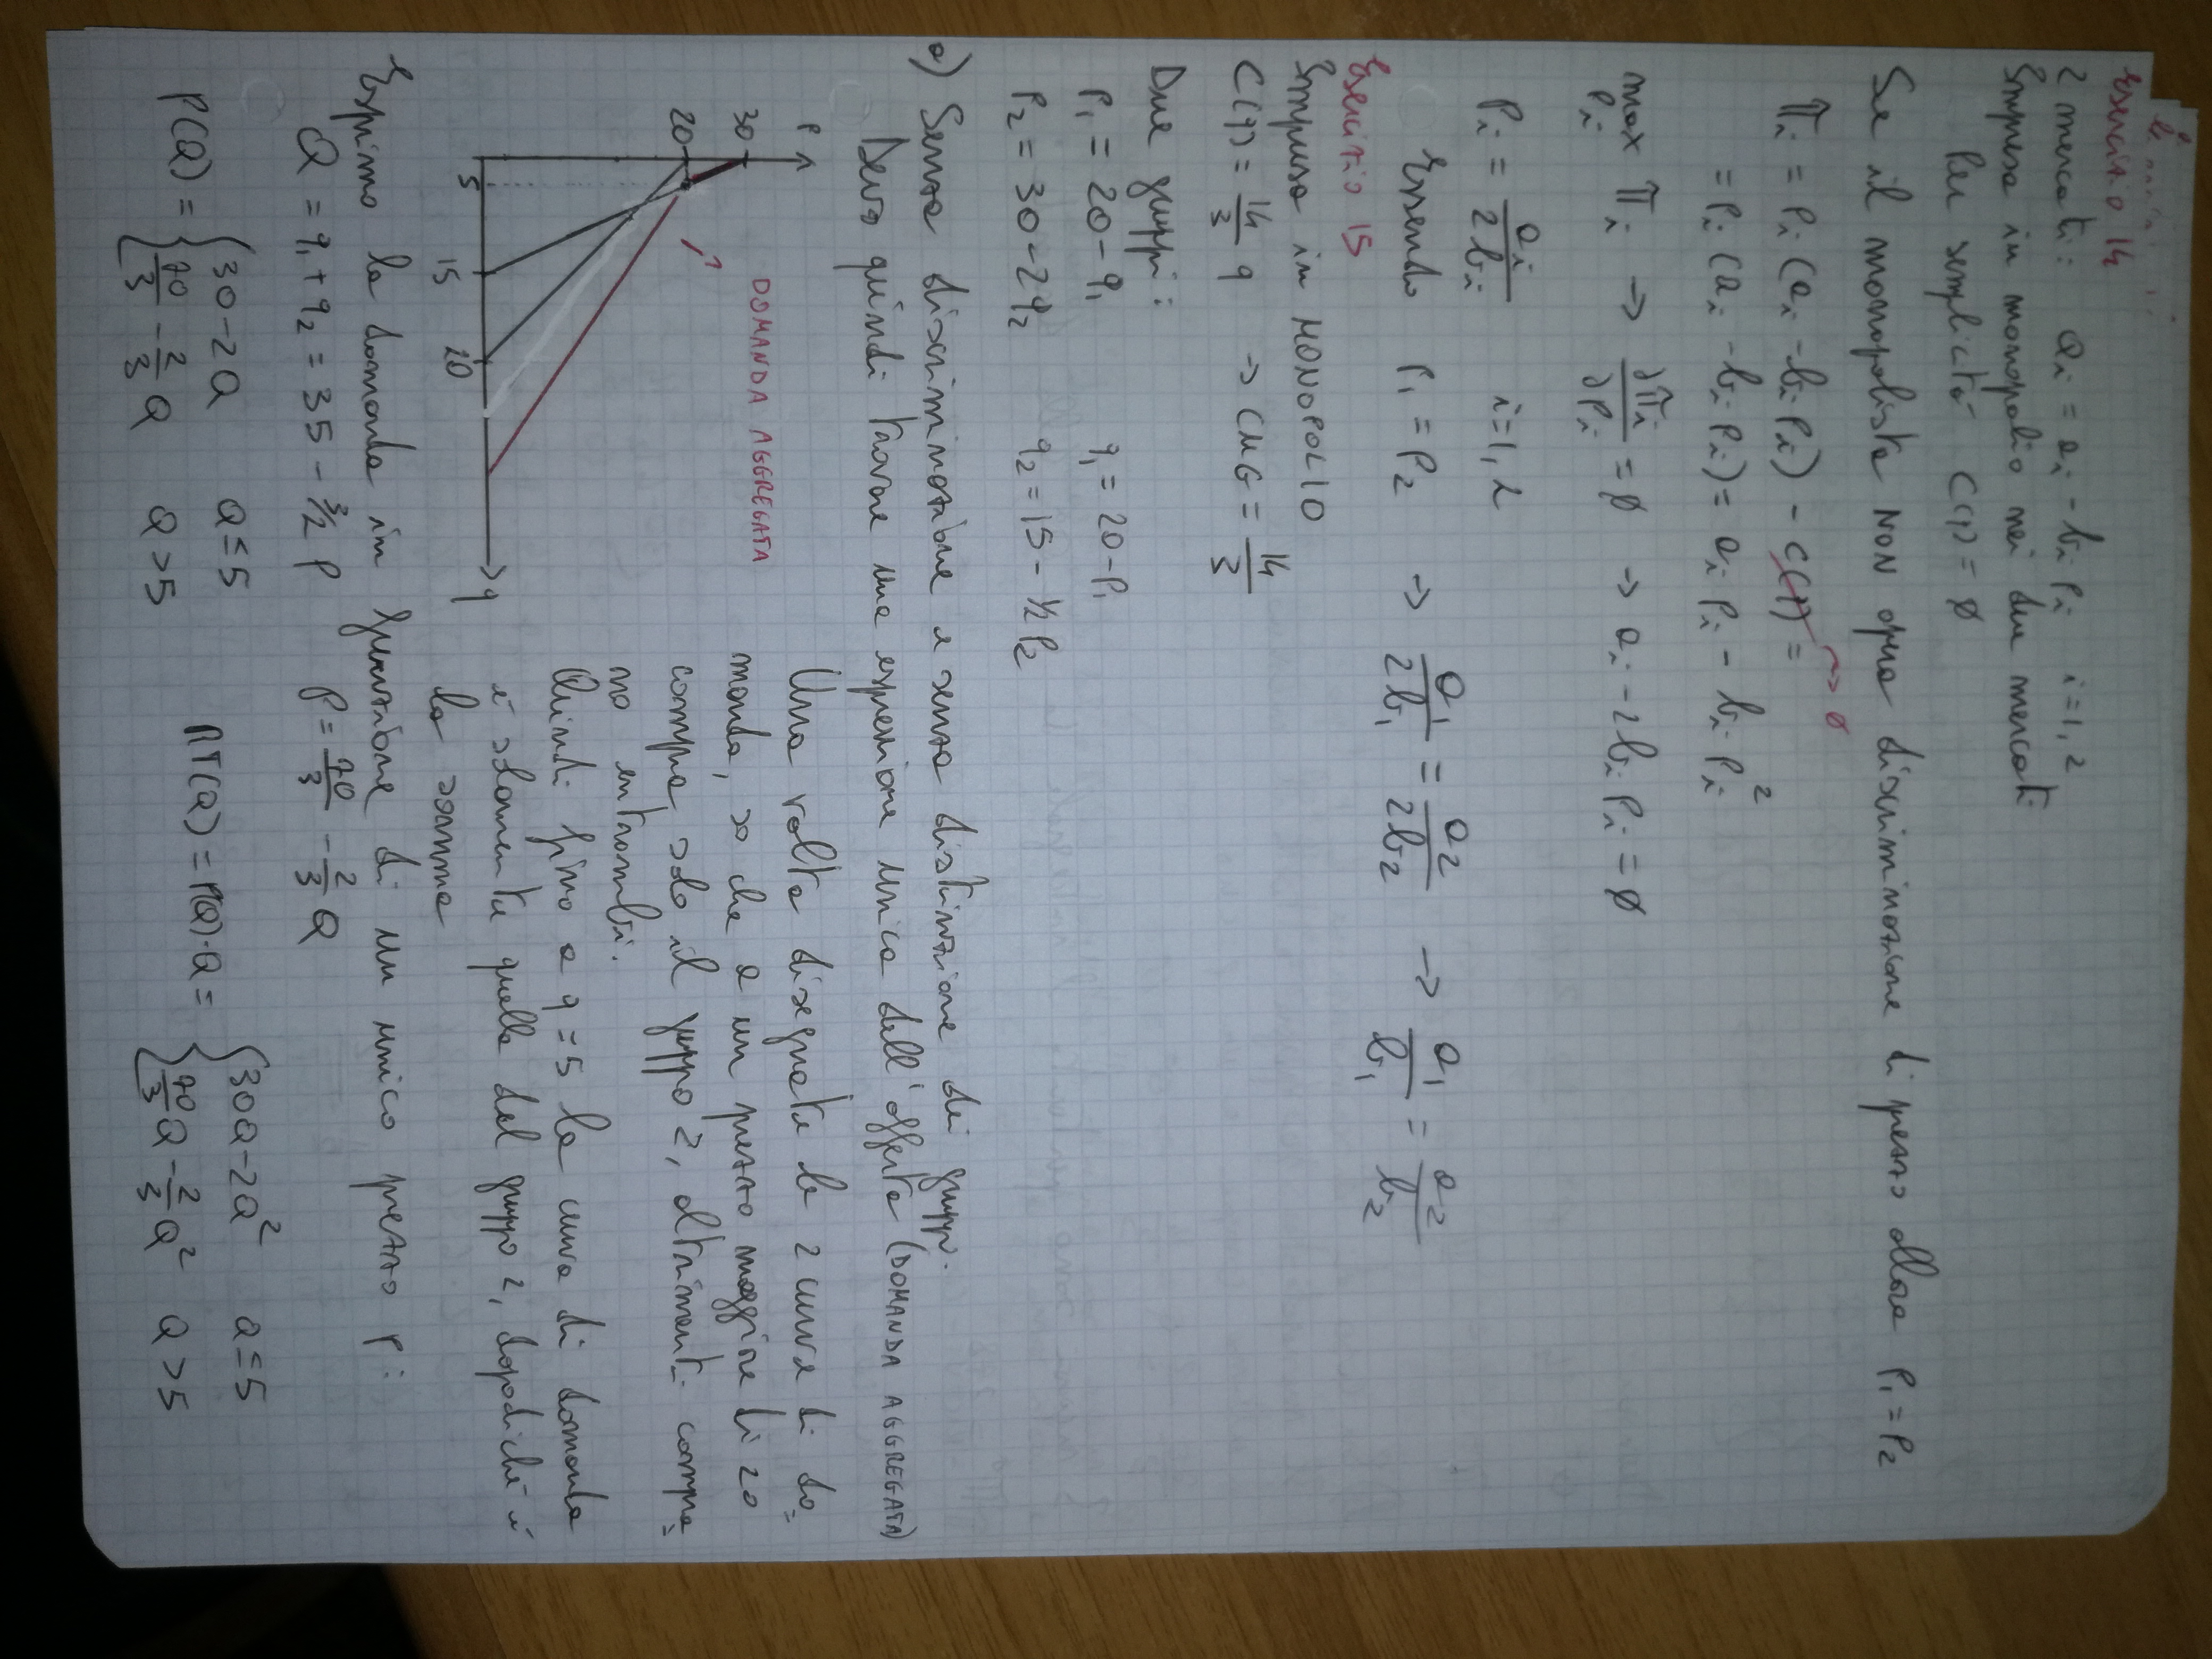 Esercizio 14
2 mercati: Qi = ai - bi pi i=1, 2
Impresa in monopolio nei due mercati
Per semplicità C(q) = ∅
Se il monopolista NON opera discriminazione di prezzo allora P1 = P2
πi = Pi (ai - bi Pi) - C(q) = ~> ∅
= Pi (ai - bi Pi) = ai Pi - bi Pi²
max Pi πi -> ∂πi/∂Pi = ∅ -> ai - 2bi Pi = ∅
Pi = ai/2bi i=1, 2
Essendo P1 = P2 -> a1/2b1 = a2/2b2 -> a1/b1 = a2/b2
Esercizio 15
Impresa in MONOPOLIO
C(q) = 14/3 q -> CMG = 14/3
Due gruppi:
P1 = 20 - q1 q1 = 20 - P1
P2 = 30 - 2q2 q2 = 15 - 1/2 P2
a) Senza discriminazione e senza distinzione dei gruppi.
Devo quindi trovare una espressione unica dell'offerta (DOMANDA AGGREGATA)
P
30
20
DOMANDA AGGREGATA
5
15
20
q
Una volta disegnate le 2 curve di do=
manda, so che a un prezzo maggiore di 20
compra solo il gruppo 2, altrimenti compra=
no entrambi.
Quindi fino a q=5 la curva di domanda
è solamente quella del gruppo 2, dopodiché è
la somma
Esprimo la domanda in funzione di un unico prezzo p:
Q = q1 + q2 = 35 - 3/2 P P = 70/3 - 2/3 Q
P(Q) = { 30 - 2Q Q ≤ 5
70/3 - 2/3 Q Q > 5
RT(Q) = P(Q)·Q = { 30Q - 2Q² Q ≤ 5
70/3 Q - 2/3 Q² Q > 5